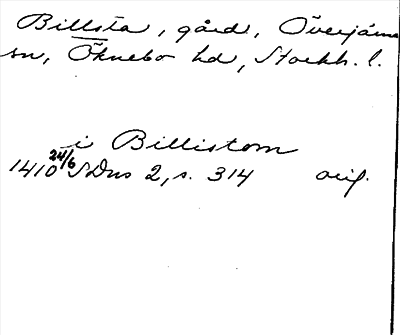 Billsta, gård, Överjärna
sn, Öknebo hd, Stockh. l.
i Billistom
1410 24/6 SDns 2, s. 314 orig.